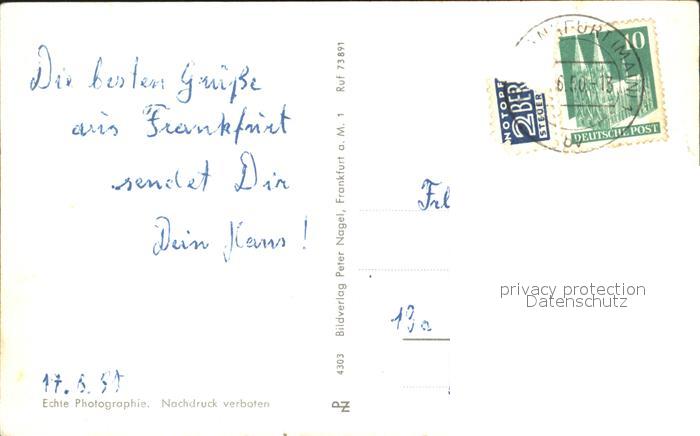 Die besten Grüße
aus Frankfurt
sendet Dir
Dein Hans!
17. 6. 50
Echte Photographie. Nachdruck verboten
4303 Bildverlag Peter Nagel, Frankfurt a. M. 1 Ruf 73891
PN
NOTOPFER
2 BERLIN
STEUER
10
DEUTSCHE POST
FRANKFURT (MAIN)
Frl
13a
privacy protection
Datenschutz